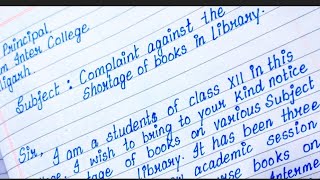 Principal,
m Inter College
ligarh.
Subject : Complaint against the
shortage of books in Library.
Sir, I am a students of class XII in this
I wish to bring to your kind notice
tage of books on various Subject
library. It has been three
academic session
urse books on
Interme